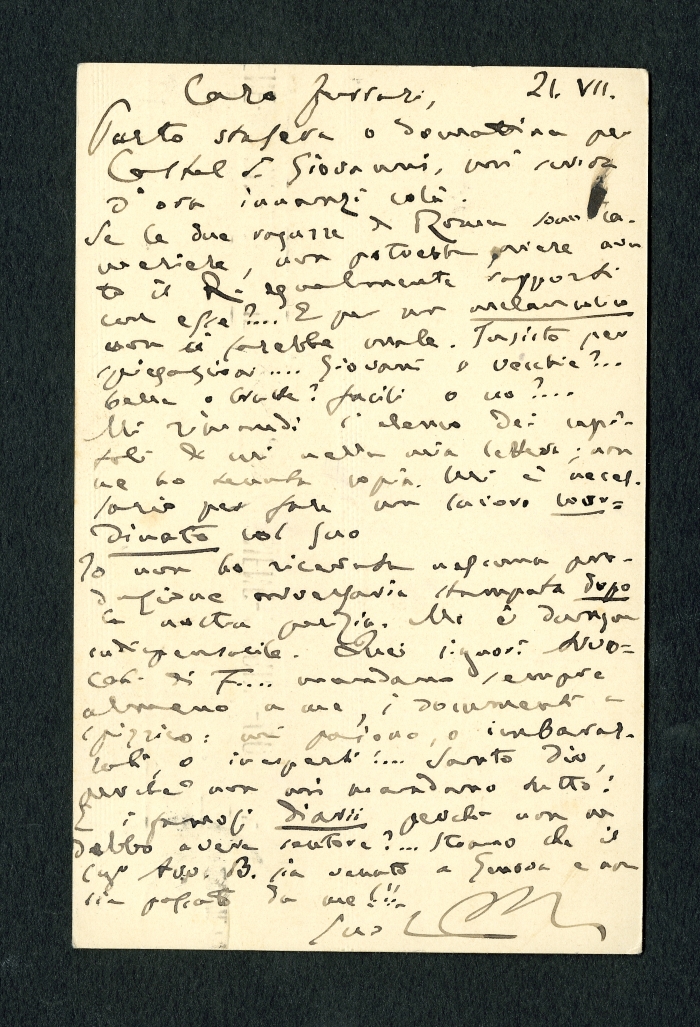 Caro Ferrari, 21. VII.
Parto stasera o domattina per
Castel S. Giovanni, mi scriva
d'ora innanzi colà.
Se le due ragazze di Roma sono ca-
meriere, non potrebbe avere avu
to il R. egualmente rapporti
con esse?... E per un
non ci sarebbe male. Insisto per
spiegazioni .... Giovani o vecchie?...
belle o brutte? facili o no?....
Mi rimandi l'elenco dei capi-
toli di cui nella mia lettera; non
ne ho tenuta copia. Mi è neces-
sario per fare un lavoro coor=
dinato col suo
Io non ho ricevuta nessuna pro-
duzione avversaria stampata dopo
la nostra perizia. Mi è dunque
indispensabile. Quei signori Avvo=
cati di F.... mandano sempre
almeno a me, i documenti a
spizzico: mi paiono, o imbaraz-
zati, o inesperti!... Santo Dio,
perché non mi mandano tutto!
E i famosi diarii perché non ne
debbo avere sentore?... Strano che il
Avv. B. sia venuto a Genova e non
sia passato da me!!!
Suo